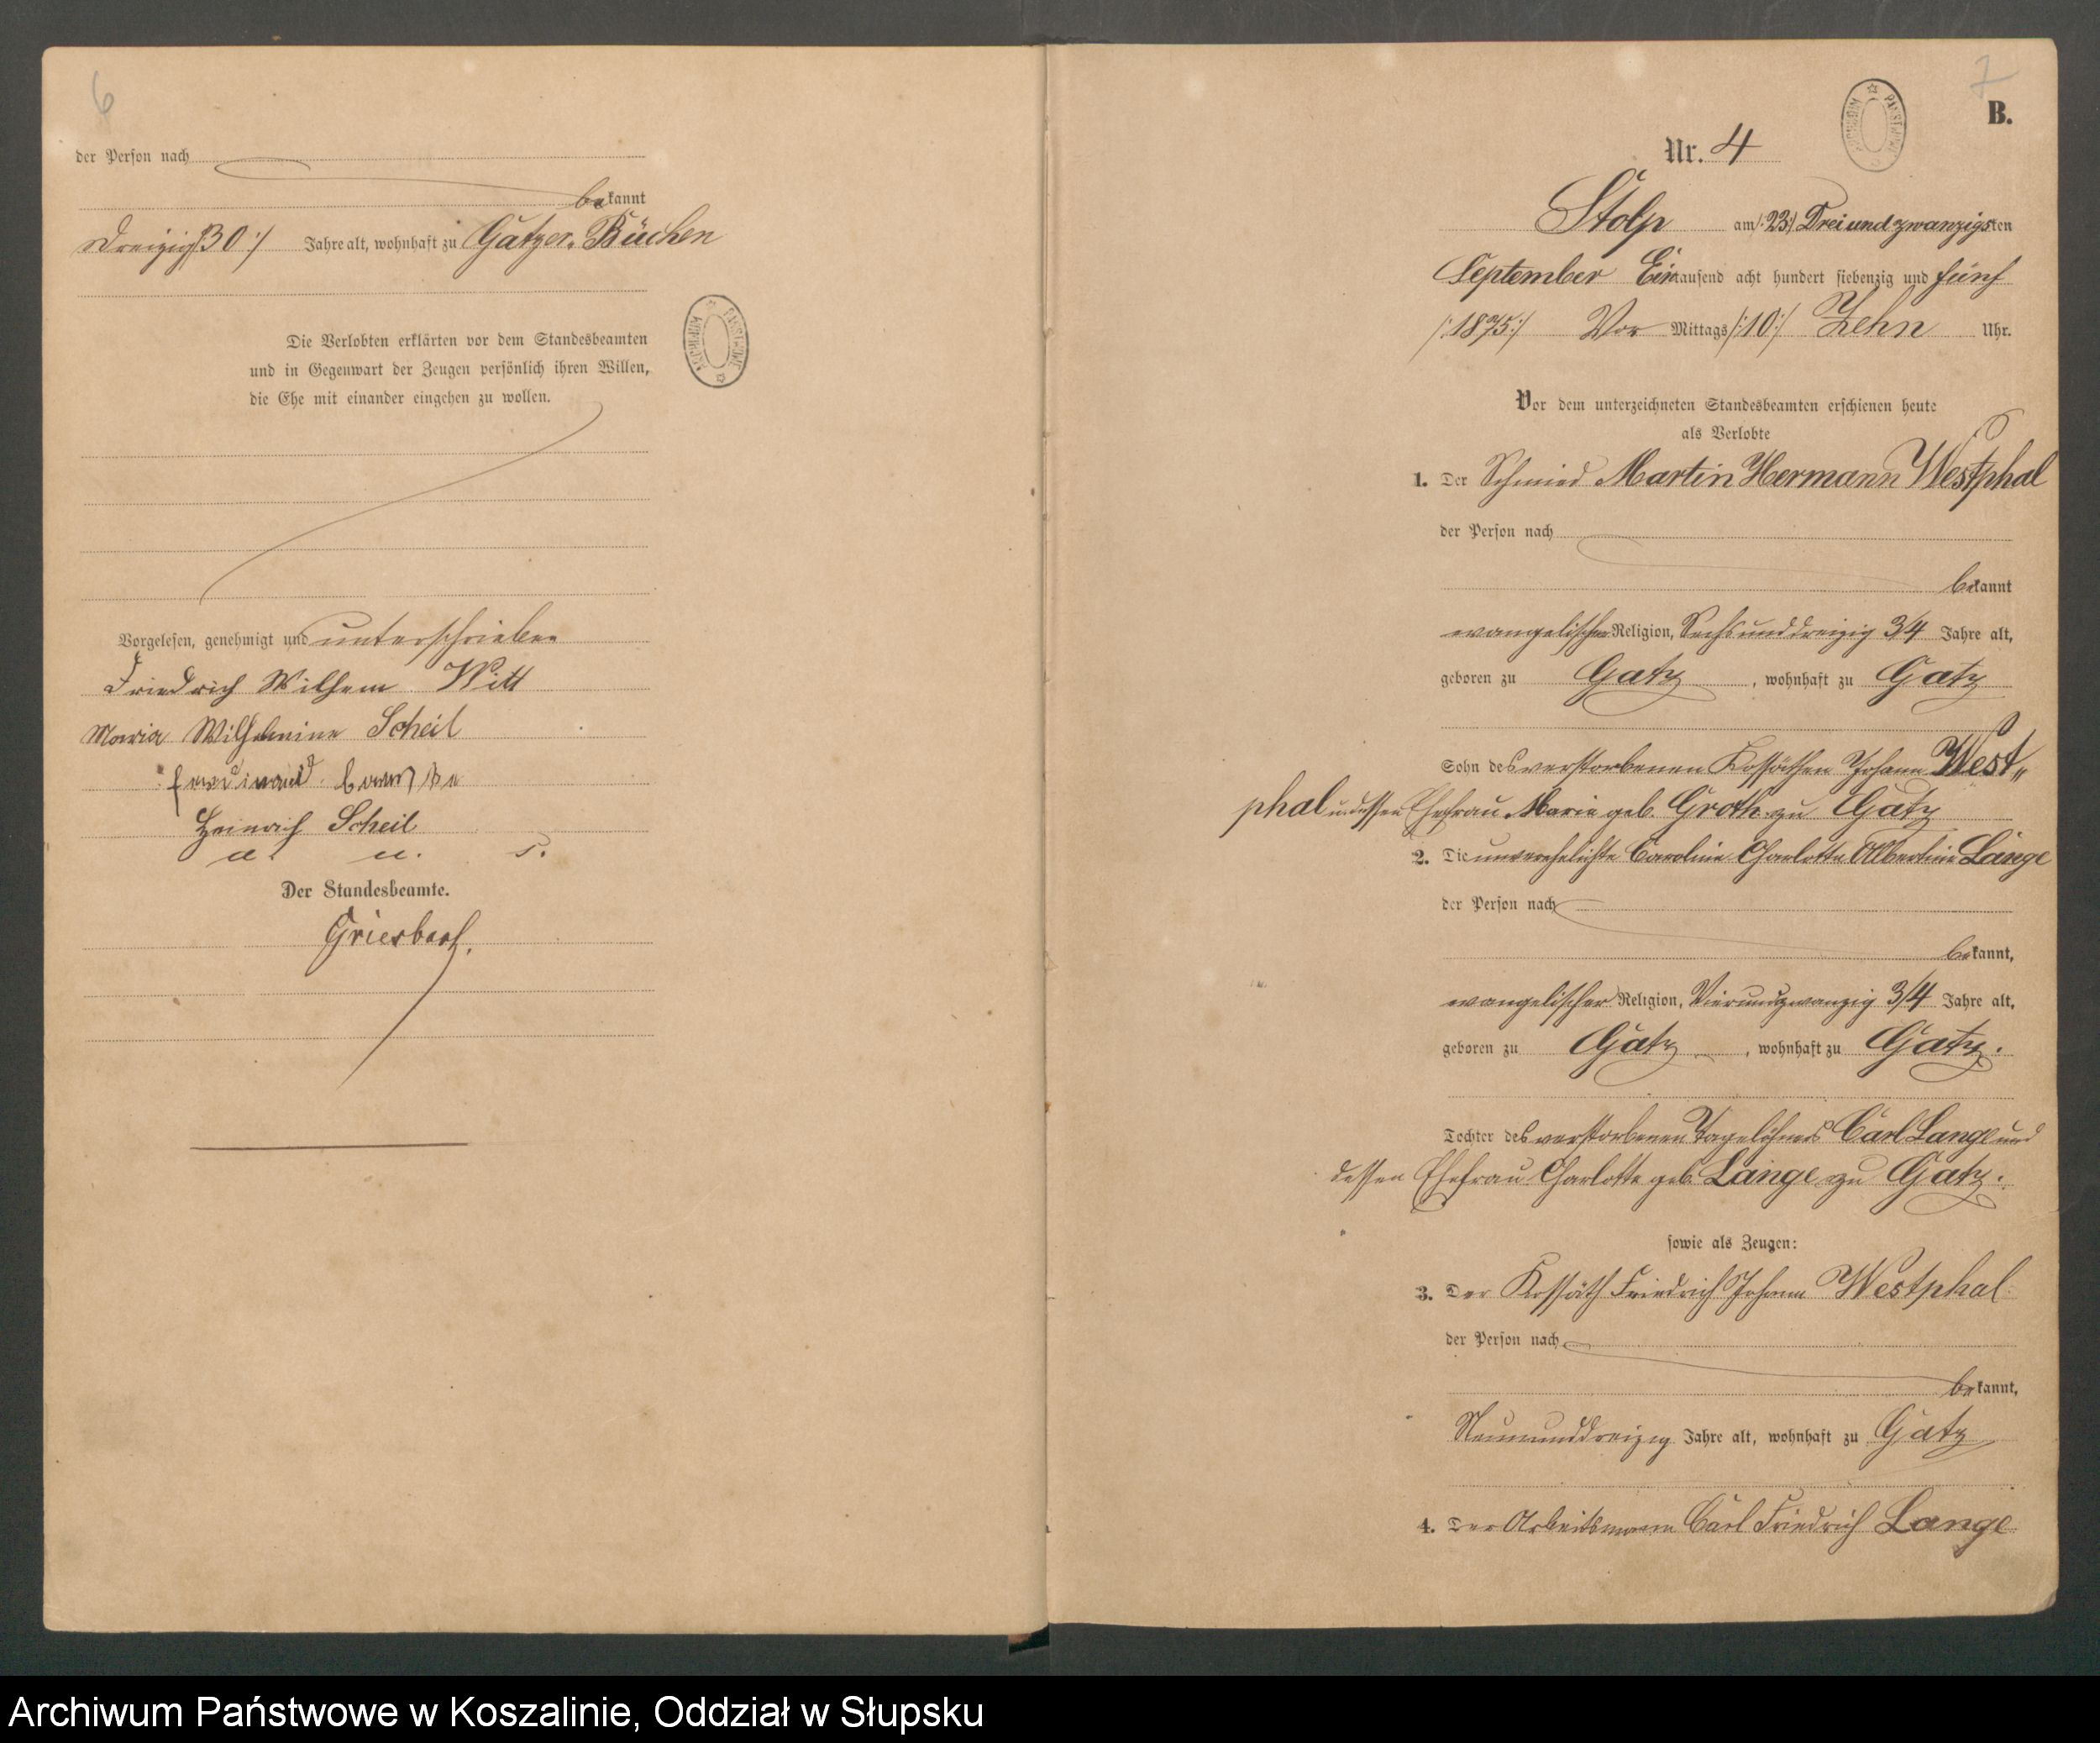 6
der Person nach
bekannt
Dreizig /:30:/ Jahre alt, wohnhaft zu Gatzer-Büchen
Die Verlobten erklärten vor dem Standesbeamten
und in Gegenwart der Zeugen persönlich ihren Willen,
die Ehe mit einander eingehen zu wollen.
Vorgelesen, genehmigt und unterschrieben
Friedrich Wilhem Witt
Maria Wilhelmine Scheil
Ferdinand
Heinrich Scheil
a. u. s.
Der Standesbeamte.
Griesbach.
7
B.
Nr. 4
Stolp am /:23:/ Dreiundzwanzigsten
September Eintausend acht hundert siebenzig und fünf
/:1875:/ Vor Mittags /:10:/ Zehn Uhr.
Vor dem unterzeichneten Standesbeamten erschienen heute
als Verlobte
1. Der Schmied Martin Hermann Westphal
der Person nach
bekannt
evangelischer Religion, Sechsunddreizig 3/4 Jahre alt,
geboren zu Gatz, wohnhaft zu Gatz
Sohn des verstorbenen Kossäthen Johann West„
phal u. dessen Ehefrau Marie geb. Groth zu Gatz
2. Die unverehelichte Caroline Charlotte Albertine Lange
der Person nach
bekannt,
evangelischer Religion, Vierundzwanzig 3/4 Jahre alt,
geboren zu Gatz, wohnhaft zu Gatz.
Tochter des verstorbenen Tagelöhners Carl Lange und
dessen Ehefrau Charlotte geb. Lange zu Gatz.
sowie als Zeugen:
3. Der Kossäth Friedrich Johann Westphal
der Person nach
bekannt,
Neununddreizig Jahre alt, wohnhaft zu Gatz
4. Der Arbeitsmann Carl Friedrich Lange
Archiwum Państwowe w Koszalinie, Oddział w Słupsku